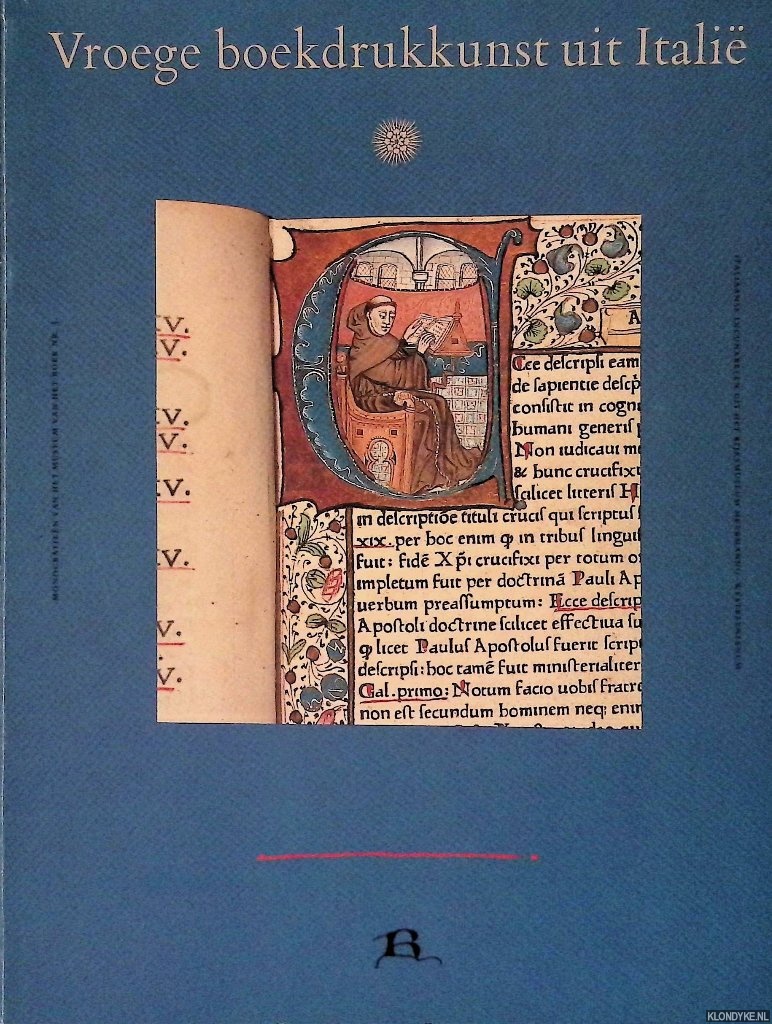 Vroege boekdrukkunst uit Italië
MONOGRAFIEËN VAN HET MUSEUM VAN HET BOEK NR. 1
ITALIAANSE INCUNABELEN UIT HET RIJKSMUSEUM MEERMANNO-WESTREENIANUM
XV.
V.
XV.
V.
XV.
XV.
V.
V.
A
Cce descripsi eam
de sapientie descp̄
consistit in cogn
humani generis
Non iudicaui
& hunc crucifix
scilicet litteris H
in descriptiõe tituli crucis qui scriptus
xix. per hoc enim ꝙ in tribus linguis
fuit: fidẽ Xp̃i crucifixi per totum o
impletum fuit per doctrinã Pauli Ap
uerbum preassumptum: Ecce descrip
Apostoli doctrine scilicet effectiua su
ꝙ licet Paulus Apostolus fuerit script
descripsi: hoc tamẽ fuit ministerialiter
Gal. primo: Notum facio uobis fratre
non est secundum hominem neq; enim
B
KLONDYKE.NL